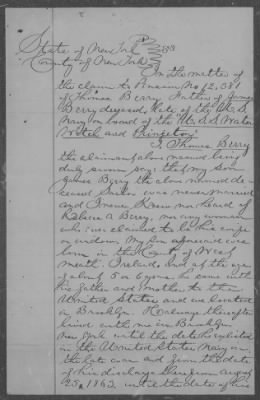 State of New York } SS
County of New York }
In the matter of
the claim to Pension No 12,381
of Thomas Berry Father of James
Berry deceased, late of the U.S.
Navy on board of the U.S.S. Water
Witch and Princeton
I, Thomas Berry
the claimant above named being
duly sworn say that my son
James Berry the above named de-
ceased sailor was never married
and I never knew nor heard of
A Berry, nor any woman
who ever claimed to be his wife
or widow, My son aforesaid was
born in the County of West
meath, Ireland, and at the age
of about 5 or 6 years he came with
his father and mother to the
United States and we located
in Brooklyn. He always thereafter
lived with me in Brooklyn
New York until the date he enlisted
in the United States Navy in
the late war and from the date
of his discharge therefrom August
25, 1862 until the date of his